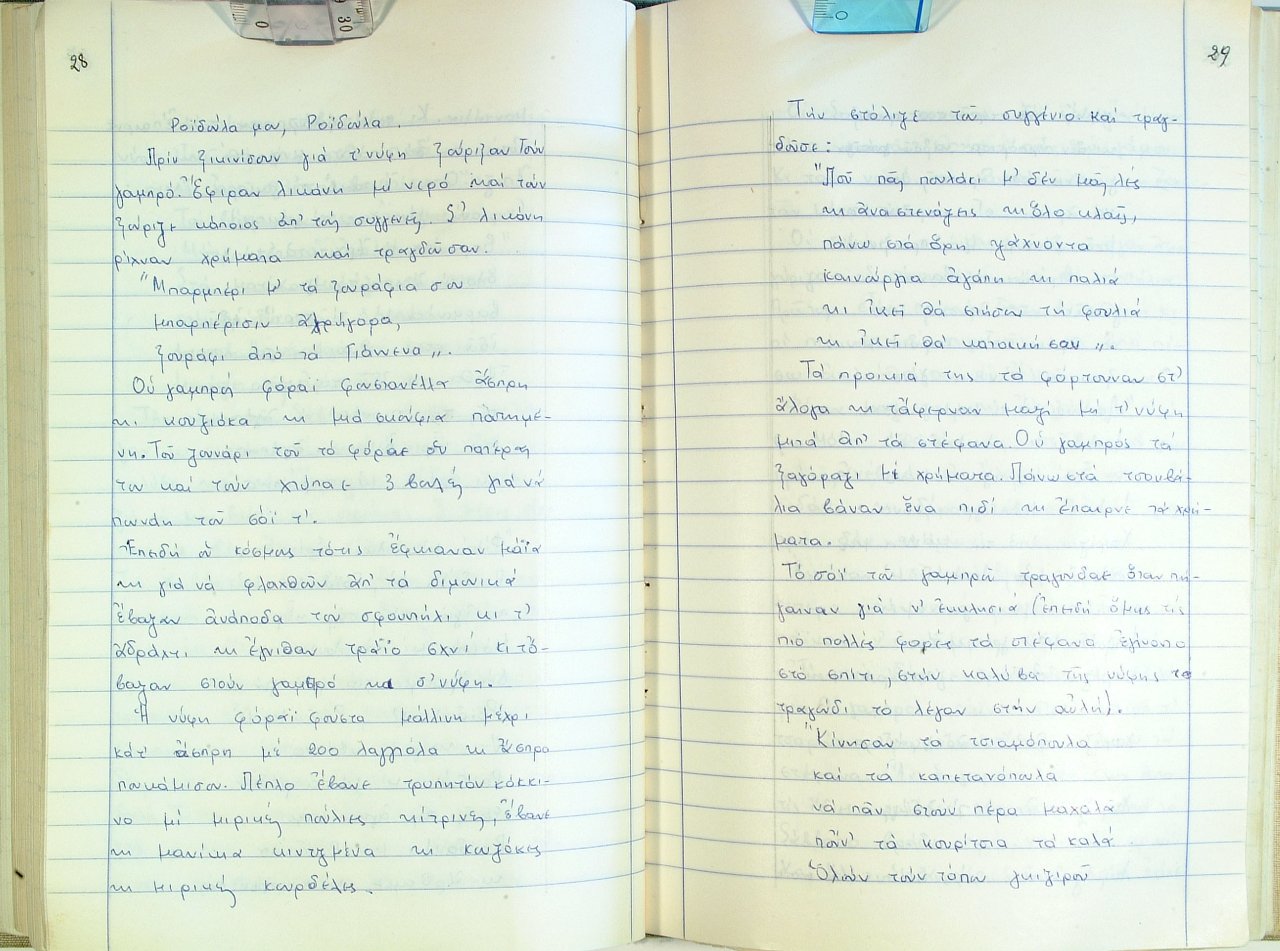 28
Ροϊδούλα μου, Ροϊδούλα.
Πρίν ξικινίσουν γιά τ' νύφη ξούριζαν τούν
γαμπρό. Ἔφιραν λικάνη μέ νερό καί τούν
ξούριζε κάποιος ἀπ' τούς συγγενεῖς. Σ' λικάνη
ρίχναν χρήματα καί τραγδοῦσαν.
"Μπαρμπέρι μ' τά ξουράφια σου
μπαρπέρισιν ἀγρήγορα,
ξουράφι ἀπό τά Γιάννενα".
Οὑ γαμπρός φόραϊ φουστανέλλα ἄσπρη
κι κουζιόκα κι μιά σκούφια πατημέ-
νη. Τοῦ ζουνάρι τοῦ τό φόραε οὑ πατέρας
του καί τούν χτύπαε 3 βολές γιά νά
πουνάη τοῦ σόϊ τ'.
Ἐπειδή οὑ κόσμους τότις ἔφκιαναν μάϊα
κι γιά νά φλαχθοῦν ἀπ' τά διμονικά
ἔβαζαν ἀνάποδα τού σφουντήλι κι τ'
ἀδράχτι κι ἔγνιθαν τράϊο σχνί κι τό-
βαζαν στούν γαμπρό κι σ' νύφη.
Ἡ νύφη φόραϊ φούστα μάλλινη μέχρι
κάτ' ἄσπρη μέ 200 λαγγιόλα κι ἄσπρο
πουκάμισου. Πέπλο ἔβανε τρυπητόν κόκκι-
νο μέ μιρικές πούλιες κίτρινες, ἔβανε
κι μανίκια κιντημένα κι κουζιόκες
κι μιρικές κουρδέλες.
29
Τήν στόλιζε τοῦ συγγένιο καί τραγ-
δοῦσε:
"Ποῦ πᾶς πουλάκι μ' δέν μᾶς λές
κι ἀναστενάζεις κι ὅλο κλαῖς,
πάνω στά ὄρη ψάχνοντα
καινούργια ἀγάπη κι παλιά
κι ἰκεῖ θά στήσου τή φουλιά
κι ἰκεῖ θά κατοικήσου".
Τά προικιά της τά φόρτουναν στ'
ἄλογα κι τἄφερναν μαζί μέ τ' νύφη
μιτά ἀπ' τά στέφανα. Οὑ γαμπρός τά
ξαγόραζι μέ χρήματα. Πάνω στά τσουβά-
λια βάναν ἕνα πιδί κι ἔπαιρνε τά χρή-
ματα.
Τό σόϊ τοῦ γαμπροῦ τραγούδαε ὅταν πή-
γαιναν γιά ν' ἐκκλησιά (ἐπειδή ὅμως τίς
πιό πολλές φορές τά στέφανα ἐγίνοντο
στό σπίτι, στήν καλύβα τῆς νύφης το
τραγούδι τό λέγαν στήν αὐλή).
"Κίνησαν τά τσιαμόπουλα
καί τά καπετανόπουλα
νά πᾶν στούν πέρα μαχαλά
ποὖν' τά κουρίτσια τά καλά.
Ὅλουν τούν τόπου γκιζιροῦ